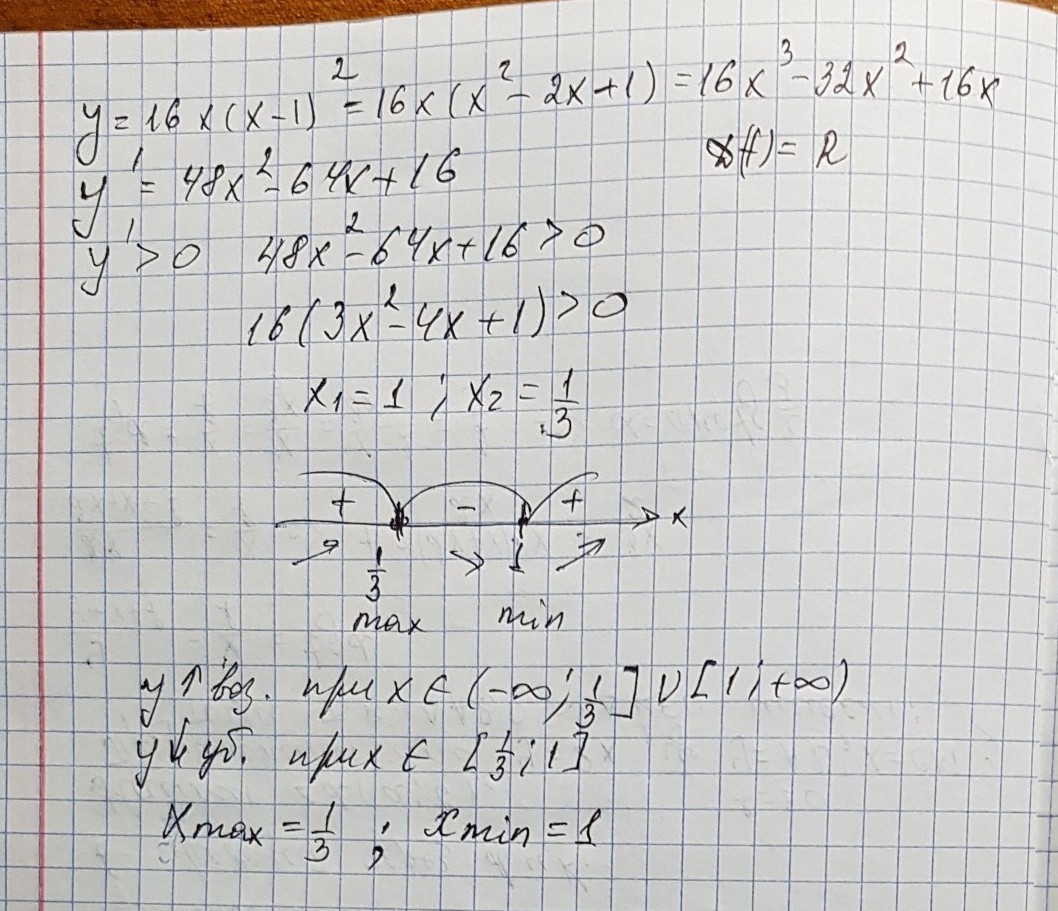 y = 16x(x-1)² = 16x(x² - 2x + 1) = 16x³ - 32x² + 16x
D(f) = R
y' = 48x² - 64x + 16
y' > 0 48x² - 64x + 16 > 0
16(3x² - 4x + 1) > 0
x₁ = 1 ; x₂ = 1/3
+ - + x
1/3 1
max min
y ↑ воз. при x ∈ (-∞; 1/3] ∪ [1; +∞)
y ↓ уб. при x ∈ [1/3; 1]
Xmax = 1/3 ; xmin = 1